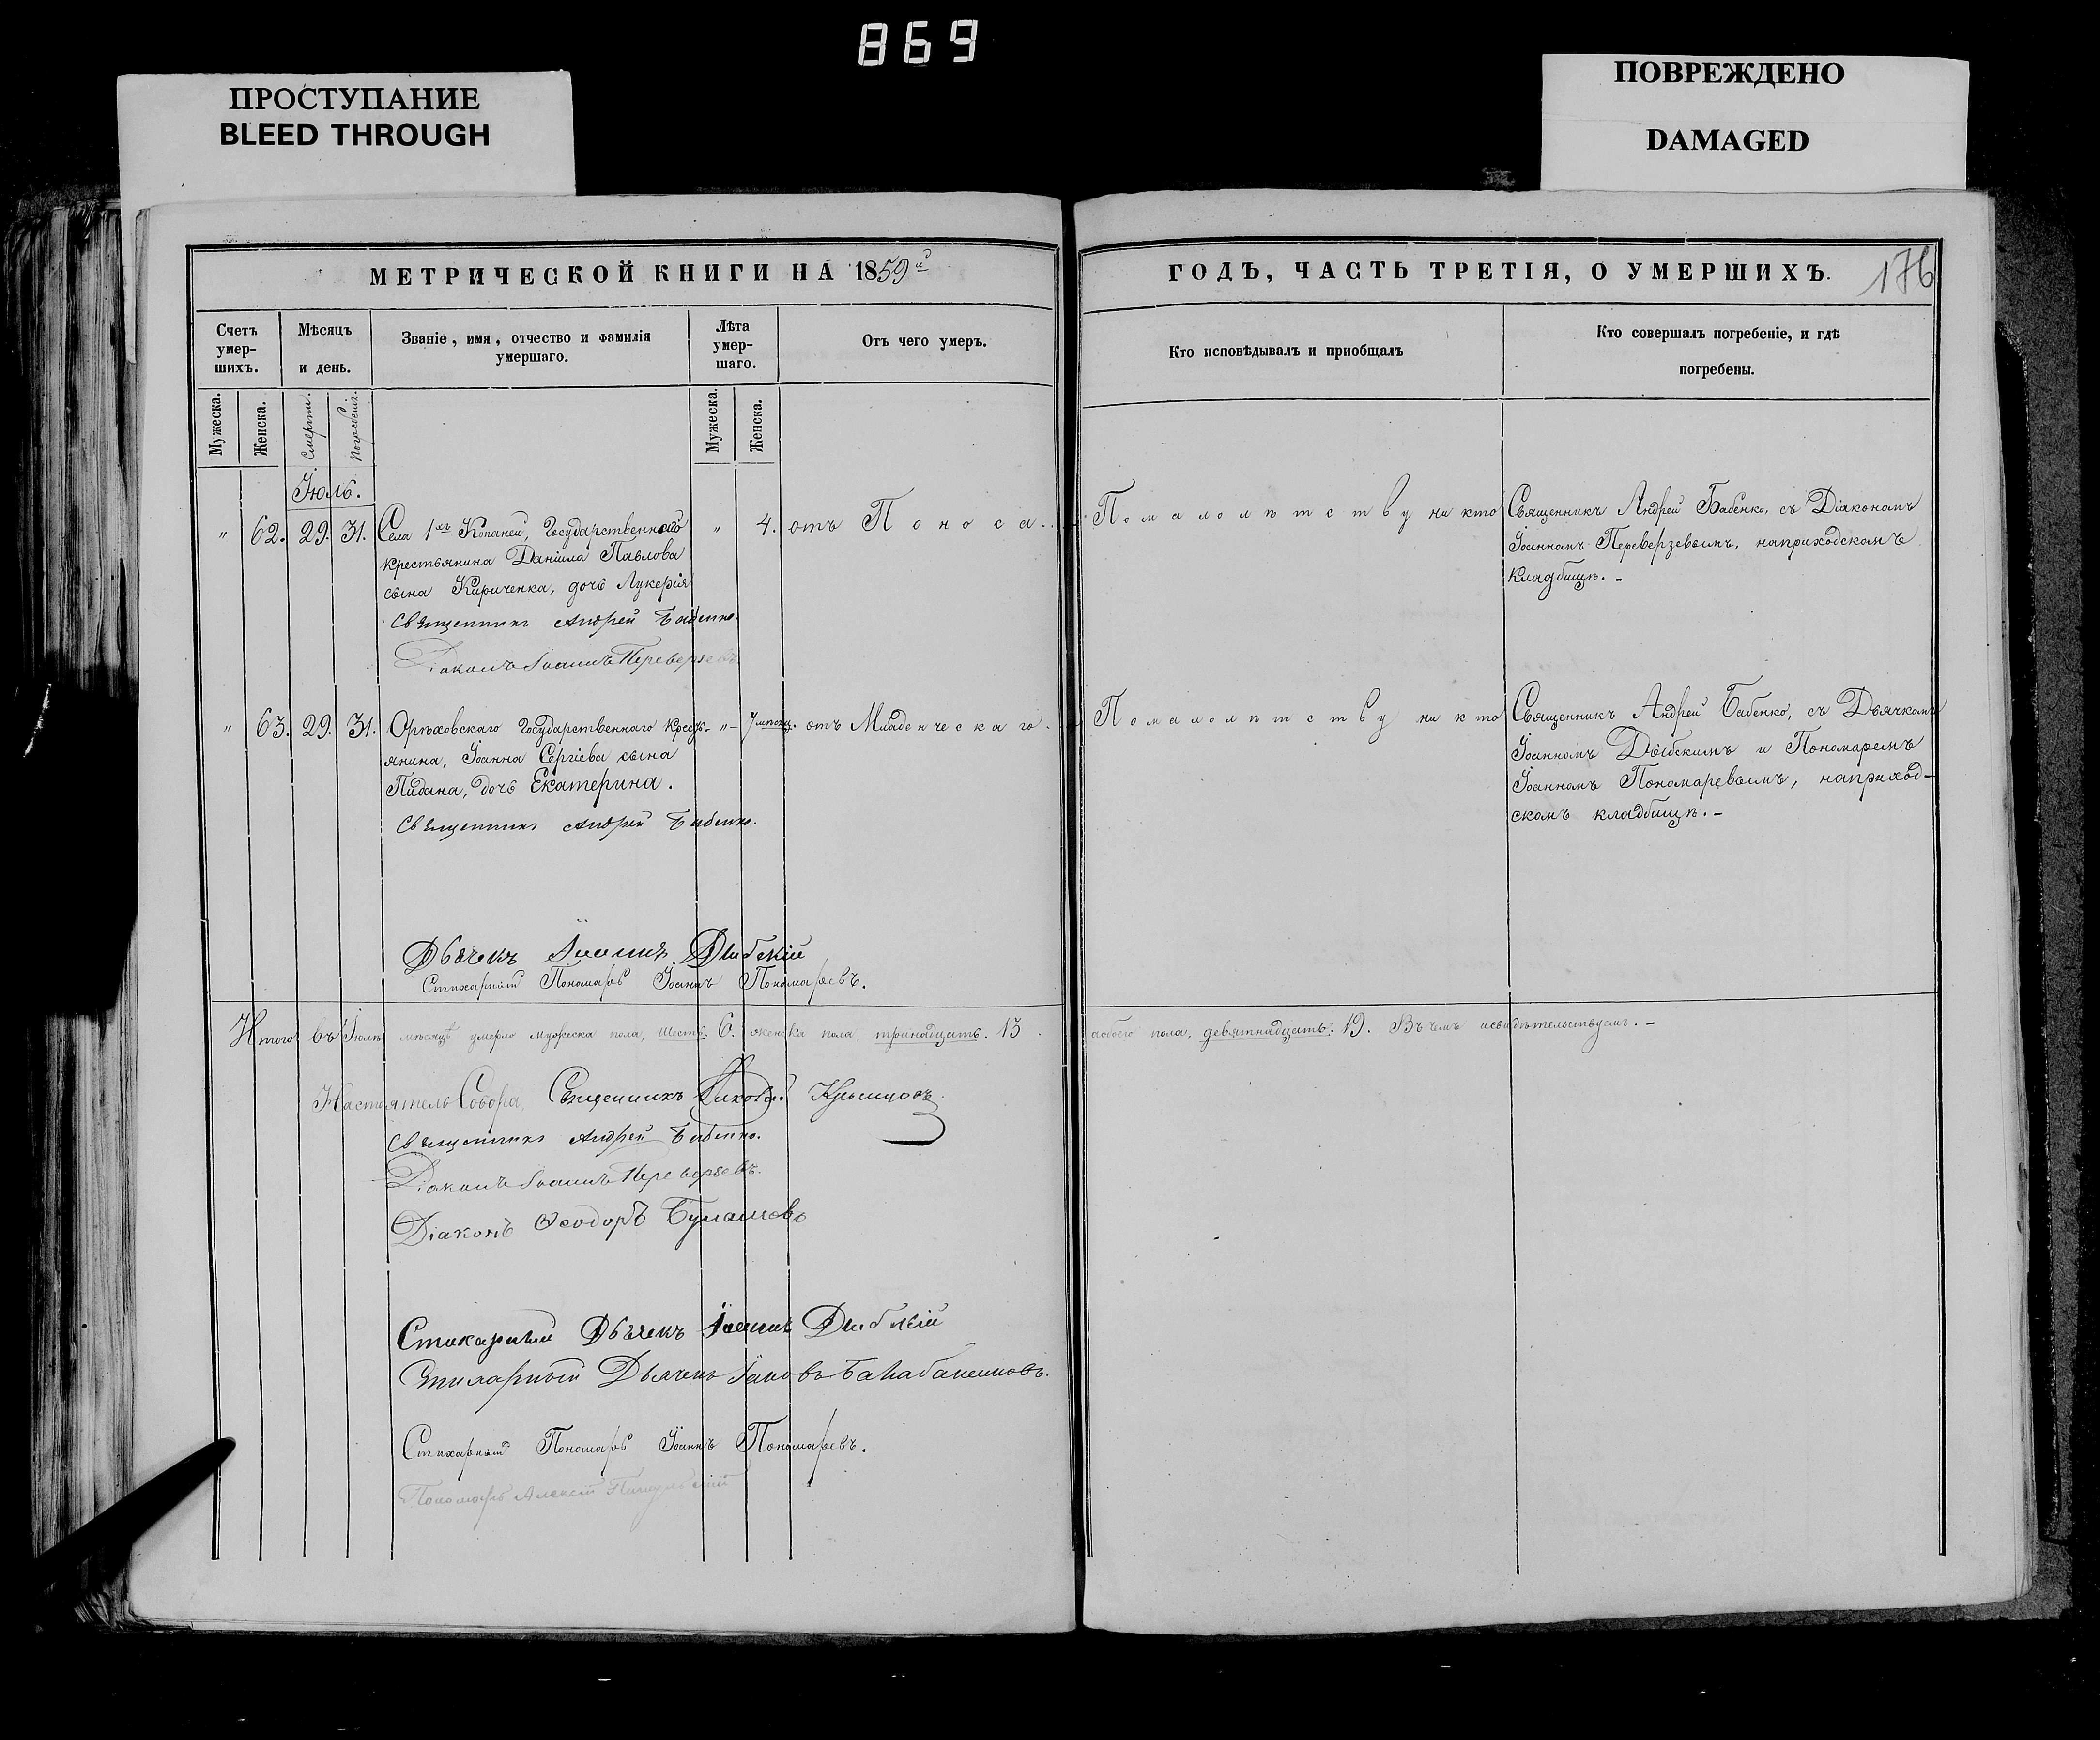 869
ПРОСТУПАНИЕ
BLEED THROUGH
ПОВРЕЖДЕНО
DAMAGED
МЕТРИЧЕСКОЙ КНИГИ НА 1859й
ГОДЪ, ЧАСТЬ ТРЕТІЯ, О УМЕРШИХЪ.
176
Счетъ умер-шихъ.
Мѣсяцъ и день.
Званіе, имя, отчество и фамилія умершаго.
Лѣта умер-шаго.
Отъ чего умеръ.
Кто исповѣдывалъ и приобщалъ
Кто совершалъ погребеніе, и гдѣ погребены.
Мужеска.
Женска.
Смерти.
Погребенія.
Мужеска.
Женска.
Іюль.
" 62. 29. 31. Села 1хъ Копаней, Государственнаго " 4. отъ Поноса.
крестьянина Даніила Павлова
сына Кириченка, дочь Лукерія
Священникъ Андрей Бабенко.
Діаконъ Іоаннъ Переверзевъ
По малолѣтству ни кто
Священникъ Андрей Бабенко, съ Діакономъ
Іоанномъ Переверзевымъ, на приходскомъ
кладбищѣ. -
" 63. 29. 31. Орѣховскаго Государственнаго крест- " - 7 мѣсяц. отъ Младенческаго.
янина, Іоанна Сергіева сына
Пидана, дочь Екатерина.
Священникъ Андрей Бабенко.
По малолѣтству ни кто
Священникъ Андрей Бабенко, съ Дьячкомъ
Іоанномъ Дыбскимъ и Пономаремъ
Іоанномъ Пономаревымъ, на приход-
скомъ кладбищѣ. -
Дьячекъ Іоаннъ Дибскій
Стихарный Пономарь Іоаннъ Пономаревъ.
Итого въ Іюлѣ мѣсяцѣ умерло мужеска пола, шесть. 6. женска пола, тринадцать. 13.
а обоего пола, девятнадцать. 19. Въ чемъ и свидѣтельствуемъ. -
Настоятель Собора, Священникъ
Священникъ Андрей Бабенко.
Діаконъ Іоаннъ Переверзевъ.
Діаконъ Ѳеодоръ
Стихарный Дьячекъ Іоаннъ Дибскій
Стихарный Дьячекъ Іаковъ
Стихарный Пономарь Іоаннъ Пономаревъ.
Пономарь Алексій